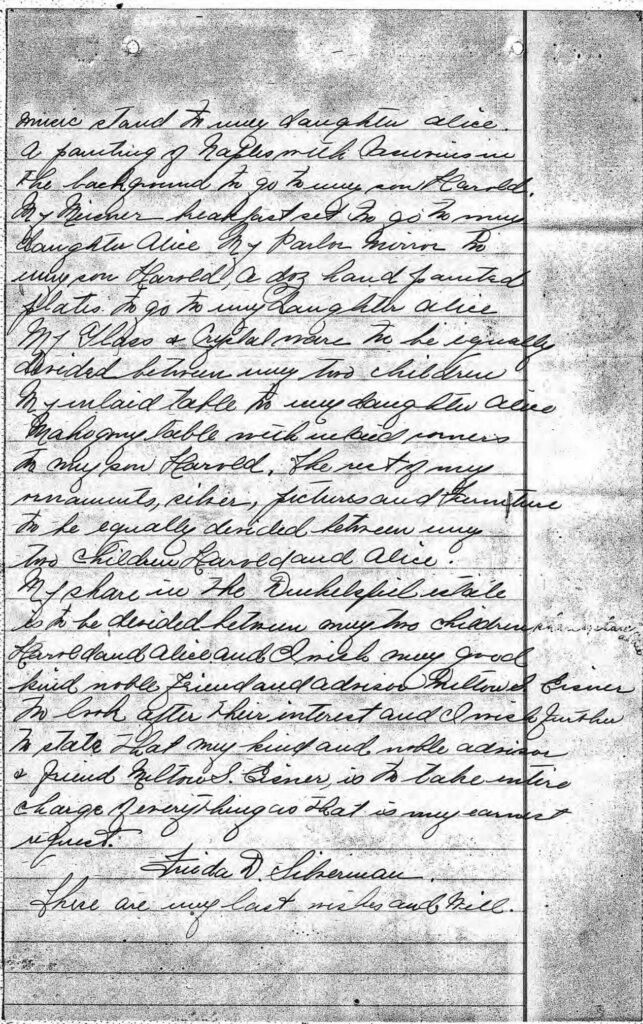 music stand to my daughter Alice.
A painting of Naples with Vesuvius in
the background to go to my son Harold.
My Meisner breakfast set to go to my
daughter Alice My Parlor Mirror to
my son Harold, a doz hand painted
plates to go to my daughter Alice
My Glass & Crystal ware to be equally
divided between my two children
My inlaid table to my daughter Alice
Mahogany table with inlaid corners
to my son Harold. The rest of my
ornaments, silver, pictures and Furniture
to be equally divided between my
two children Harold and Alice.
My share in the Dinkelspiel estate
is to be divided between my two children
Harold and Alice and I wish my good
kind noble Friend and advisor Milton S. Eisner
to look after their interest and I wish further
to state that my kind and noble advisor
& friend Milton S. Eisner, is to take entire
charge of everything as that is my earnest
request.
Frieda D. Silverman.
These are my last wishes and Will.